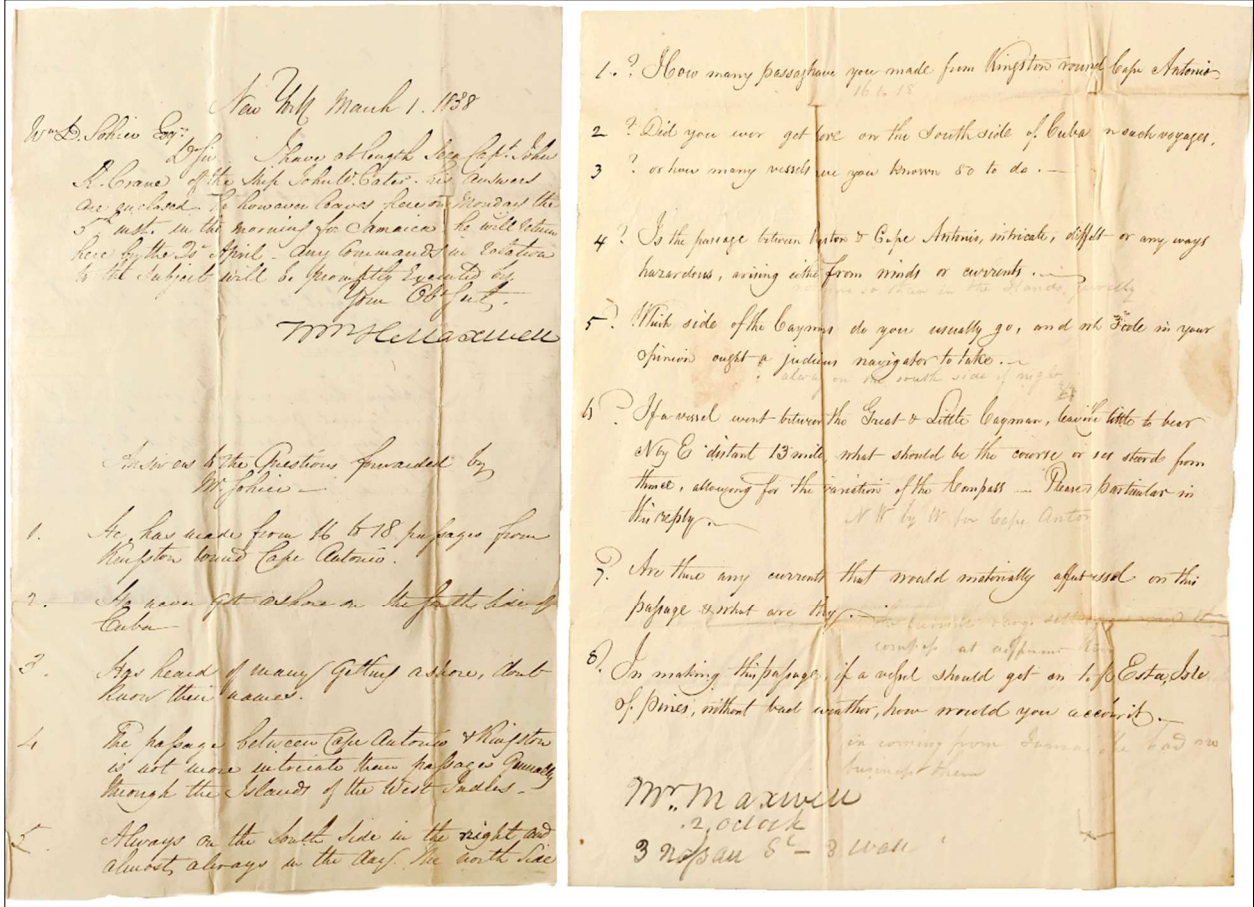 New York March 1. 1838
Wm D. Sohier Esqr
D Sir I have at length seen Capt. John
R. Crane of the Ship John W. Cater. his answers
are enclosed. he however leaves here on Monday the
5 inst. in the morning for Jamaica he will return
here by the 20 April. Any Commands in relation
to the Subject will be promptly Executed by
Your Obt Sert.
Wm H. Maxwell
Answers to the Questions forwarded by
Mr Sohier —
1. He has made from 16 to 18 passages from
Kingston round Cape Antonio.
2. He never got ashore on the South Side of
Cuba
3. Has heard of many getting ashore, dont
know their names.
4 The passage between Cape Antonio & Kingston
is not more intricate than passages Generally
through the Islands of the West Indies. —
5. Always on the South Side in the night and
almost always in the day. The north Side
1. ? How many passag have you made from Kingston round Cape Antonio
16 to 18
2 ? Did you ever get ore on the South side of Cuba n such voyages,
3 ? or how many vessels ve you known so to do. —
4 ? Is the passage between ston & Cape Antonio, intricate, diffilt or any ways
hazardous, arising eithe from winds or currents. —
so than in the Islands generally
5 ? Which side of the Caymns do you usually go, and wh side in your
opinion ought a judius navigator to take. —
always on the south side if night
6 ? If a vessel went between the Great & Little Cayman, leavin the little to bear
N by E distant 13 mile what should be the course or es steerd from
thence, allowing for the variation of the Compass — Please particular in
this reply. —
N W by W for Cape Anton
7. Are there any currents that would materially affect essel on this
passage & what are they. —
compass at different times
8. ? In making this passage, if a vessel should get on pe Este, Isle
of Pines, without bad weather, how would you accont it. —
in coming from Jamaica he had no
business there
Mr. Maxwell
2, oclock
3 Nassau St — 3 Wall